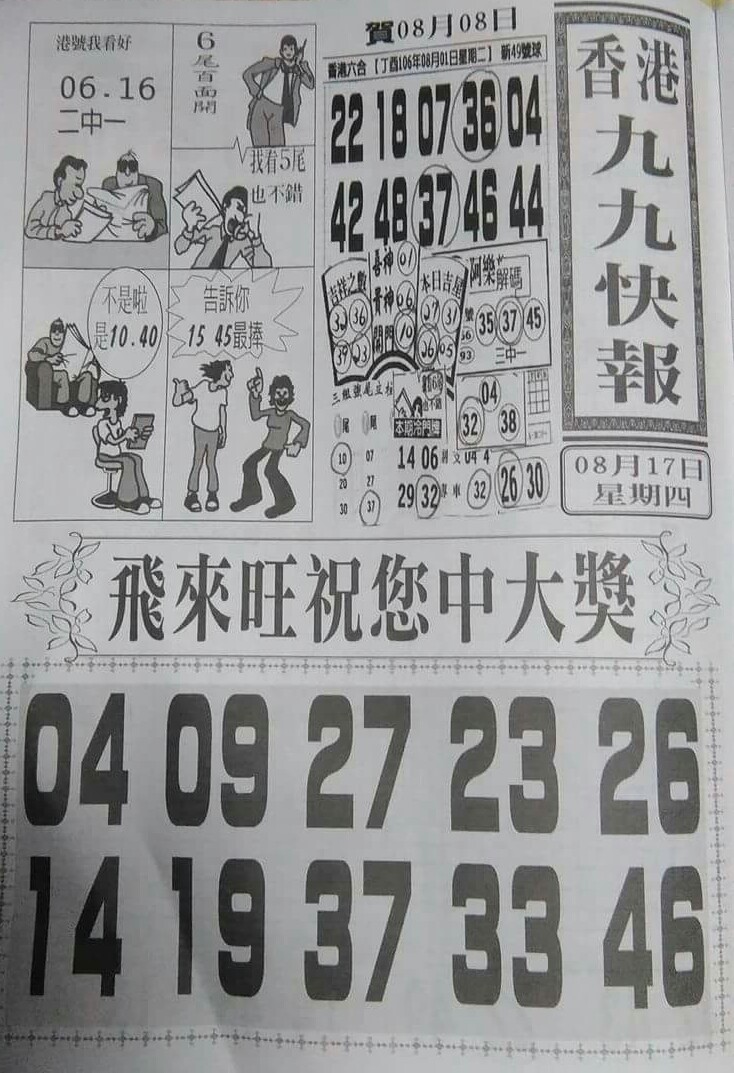 港號我看好
06.16
二中一
6
尾
百
面
開
我看5尾
也不錯
不是啦
是10.40
告訴你
15 45最捧
賀08月08日
香港六合【丁酉106年08月01日星期二】新49號球
22 18 07 36 04
42 48 37 46 44
吉祥之數
32 36
39 23
喜神 01
貴神 06
開門 10
本日吉星
27 31
26 05
阿樂解碼
35 37 45
三中一
三組號尾立柱
尾 尾
10 07
20 27
30 37
本期冷門牌
14 06
29 32
04
32 38
32 26 30
香港
九
九
快
報
08月17日
星期四
飛來旺祝您中大獎
04 09 27 23 26
14 19 37 33 46